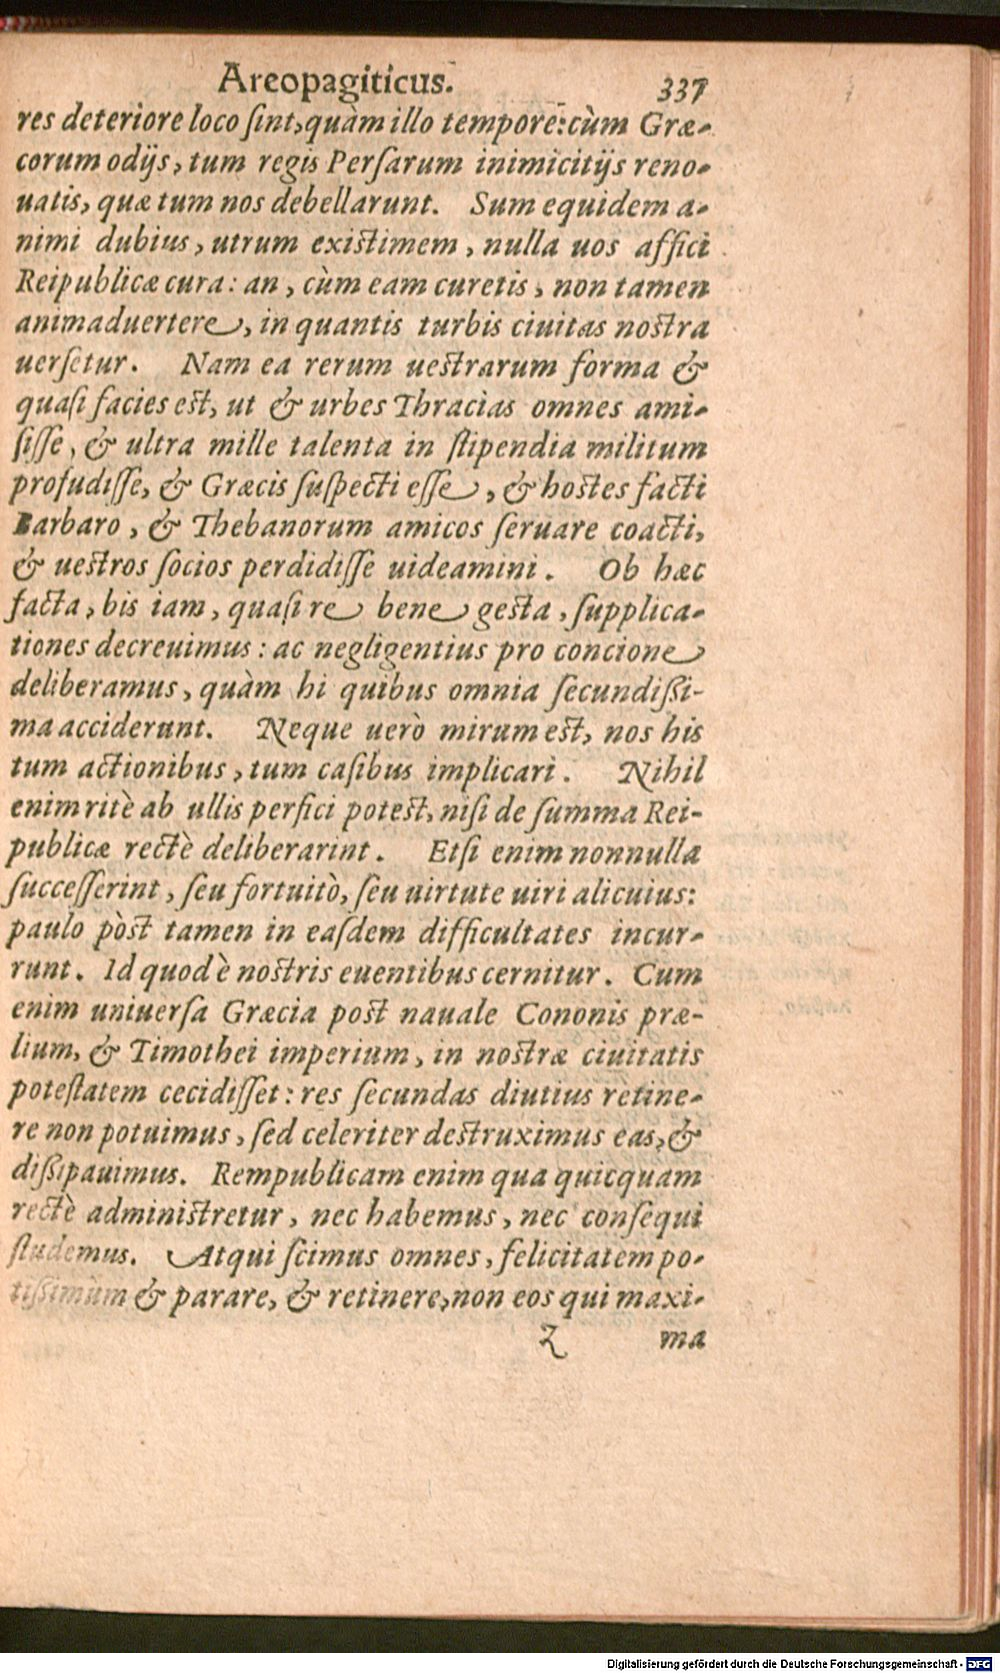 Areopagiticus. 337
res deteriore loco ſint, quàm illo tempore: cùm Græ-
corum odijs, tum regis Perſarum inimicitijs reno-
uatis, quæ tum nos debellarunt. Sum equidem a-
nimi dubius, utrum existimem, nulla uos affici
Reipublicæ cura: an, cùm eam curetis, non tamen
animaduertere, in quantis turbis ciuitas nostra
uerſetur. Nam ea rerum uestrarum forma &
quaſi facies est, ut & urbes Thracias omnes ami-
ſiſſe, & ultra mille talenta in ſtipendia militum
profudiſſe, & Græcis ſuſpecti eſſe, & hostes facti
Barbaro, & Thebanorum amicos ſeruare coacti,
& uestros ſocios perdidiſſe uideamini. Ob hæc
facta, bis iam, quaſi re bene gesta, ſupplica-
tiones decreuimus: ac negligentius pro concione
deliberamus, quàm hi quibus omnia ſecundißi-
ma acciderunt. Neque uerò mirum est, nos his
tum actionibus, tum caſibus implicari. Nihil
enim ritè ab ullis perfici potest, niſi de ſumma Rei-
publicæ rectè deliberarint. Etſi enim nonnulla
ſucceſſerint, ſeu fortuitò, ſeu uirtute uiri alicuius:
paulo pòst tamen in eaſdem difficultates incur-
runt. Id quod è nostris euentibus cernitur. Cum
enim uniuerſa Græcia post nauale Cononis præ-
lium, & Timothei imperium, in nostræ ciuitatis
poteſtatem cecidiſſet: res ſecundas diutius retine-
re non potuimus, ſed celeriter destruximus eas, &
dißipauimus. Rempublicam enim qua quicquam
rectè administretur, nec habemus, nec conſequi
ſtudemus. Atqui ſcimus omnes, felicitatem po-
tißimùm & parare, & retinere, non eos qui maxi-
Z ma
Digitalisierung gefördert durch die Deutsche Forschungsgemeinschaft - DFG